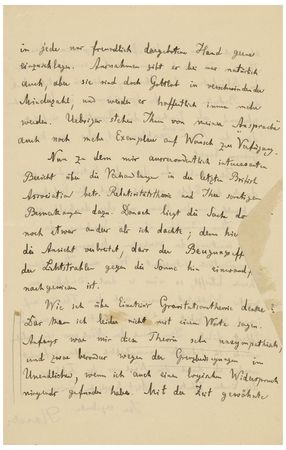 in jede nur freundlich dargebotene Hand gerne
einzuschlagen. Ausnahmen gibt es bei uns natürlich
auch, aber sie sind doch Gottlob in verschwindender
Minderzahl, und werden es hoffentlich immer mehr
werden. Uebrigens stehen Ihnen von meiner Ansprache
auch noch mehr Exemplare auf Wunsch zur Verfügung.
Nun zu dem mir ausserordentlich interessanten
Bericht über die Verhandlungen in der letzten British
Association betr. Relativitätstheorie und Ihre sonstigen
Bemerkungen dazu. Danach liegt die Sache doch
noch etwas anders als ich dachte; denn hier
die Ansicht verbreitet, dass der
der Lichtstrahlen gegen die Sonne hin einwandfrei
nachgewiesen ist.
Wie ich über Einsteins Gravitationstheorie denke?
Das kann ich leider nicht mit einem Worte sagen.
Anfangs war mir diese Theorie sehr unsympathisch,
und zwar besonders wegen der Grenzbedingungen im
Unendlichen, wenn ich auch einen logischen Widerspruch
nirgends gefunden habe. Mit der Zeit gewöhnte